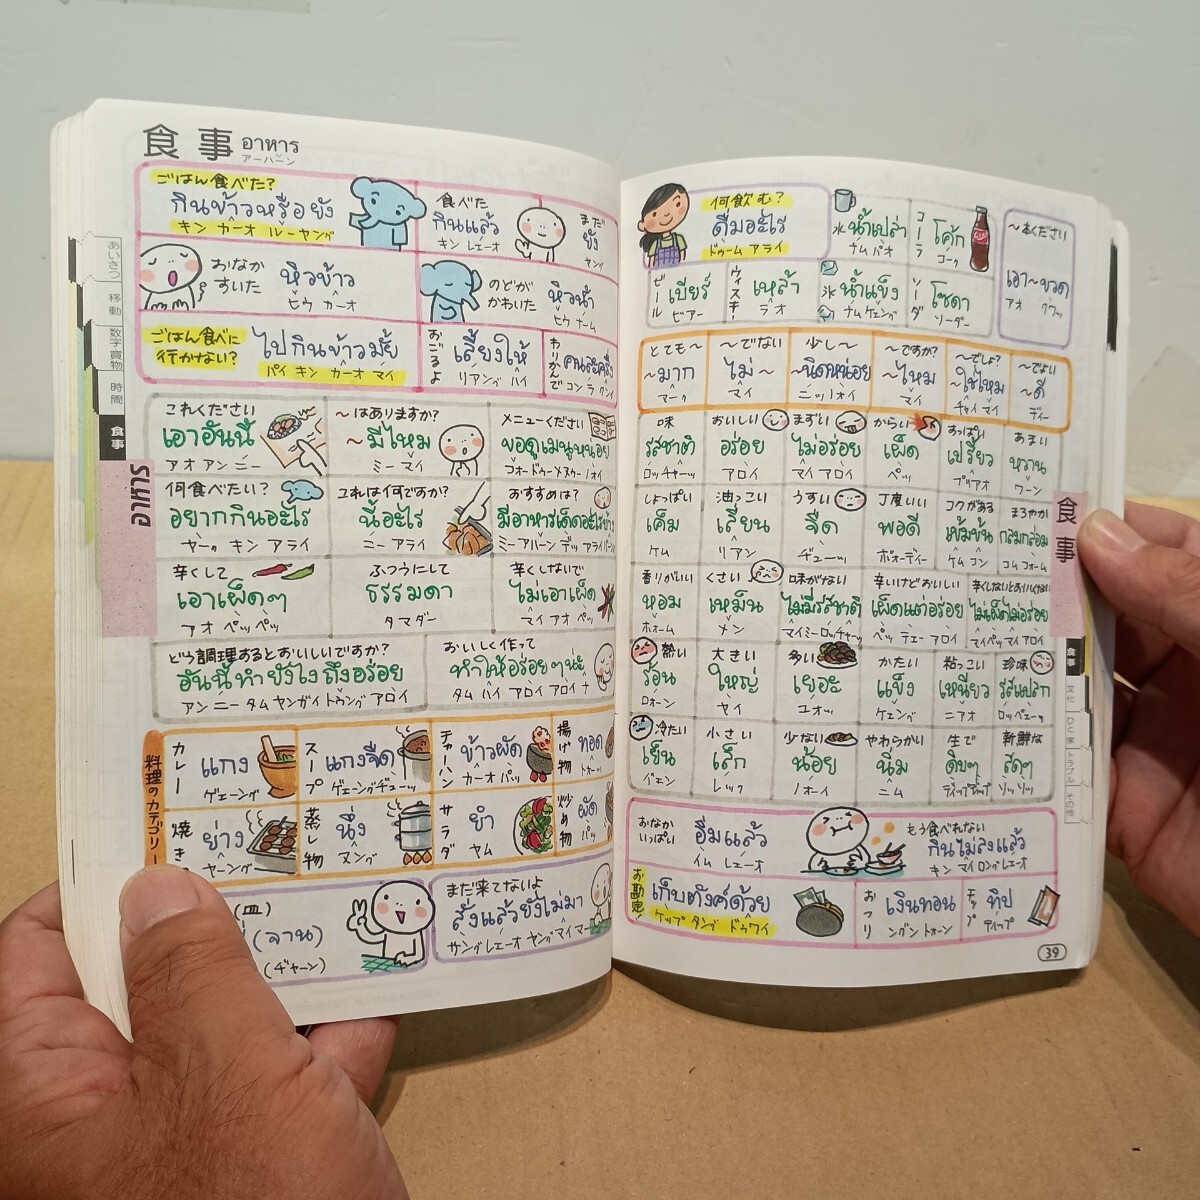 食事 อาหาร
アーハーン
ごはん食べた?
กินข้าวหรือยัง
キン カーオ ルーヤング
食べた
กินแล้ว
キン レェーオ
まだ
ยัง
ヤング
おなか
すいた
หิวข้าว
ヒウ カーオ
のどが
かわいた
หิวน้ำ
ヒウ ナーム
ごはん食べに
行かない?
ไปกินข้าวมั้ย
パイ キン カーオ マイ
おごるよ
เลี้ยงให้
リアング ハイ
わりかんで
คนละครึ่ง
コン ラ クン
あいさつ
移動
数字 買物
時間
食事
อาหาร
これください
เอาอันนี้
アオ アン ニー
~はありますか?
~มีไหม
ミー マイ
メニューください
ขอดูเมนูหน่อย
コォー ドゥー メヌゥー ノォイ
何食べたい?
อยากกินอะไร
ヤーク キン アライ
これは何ですか?
นี้อะไร
ニー アライ
おすすめは?
มีอาหารเด็ดอะไรบ้าง
ミー アハーン デッ アライ バーン
辛くして
เอาเผ็ดๆ
アオ ペッペッ
ふつうにして
ธรรมดา
タマダー
辛くしないで
ไม่เอาเผ็ด
マイ アオ ペッ
どう調理するとおいしいですか?
อันนี้ทำยังไงถึงอร่อย
アン ニー タム ヤンガイ トゥング アロイ
おいしく作って
ทำให้อร่อยๆนะ
タム ハイ アロイ アロイ ナ
料理のカテゴリー
カレー
แกง
ゲェーング
スープ
แกงจืด
ゲェーングヂューッ
チャーハン
ข้าวผัด
カーオ パッ
揚げ物
ทอด
トォーッ
焼き
ย่าง
ヤーング
蒸し物
นึ่ง
ヌング
サラダ
ยำ
ヤム
炒め物
ผัด
パッ
(皿)
(จาน)
(ヂャーン)
まだ来てないよ
สั่งแล้วยังไม่มา
サング レェーオ ヤング マイ マー
何飲む?
ดื่มอะไร
ドゥーム アライ
水
น้ำเปล่า
ナム パオ
コーラ
โค้ก
コーク
~本ください
เอา~ขวด
アオ クワッ
ビール
เบียร์
ビアー
ウィスキー
เหล้า
ラオ
氷
น้ำแข็ง
ナム ケェング
ソーダ
โซดา
ソーダー
とても~
~มาก
マーク
~でない
ไม่~
マイ
少し~
~นิดหน่อย
ニッ ノォイ
~ですか?
~ไหม
マイ
~でしょ?
~ใช่ไหม
チャイ マイ
~でよい
~ดี
ディー
味
รสชาติ
ロッ チャーッ
おいしい
อร่อย
アロイ
まずい
ไม่อร่อย
マイ アロイ
からい
เผ็ด
ペッ
すっぱい
เปรี้ยว
プリアオ
あまい
หวาน
ワーン
しょっぱい
เค็ม
ケム
油っこい
เลี่ยน
リアン
うすい
จืด
ヂューッ
丁度いい
พอดี
ポォーディー
コクがある
เข้มข้น
ケム コン
まろやか
กลมกล่อม
コム コォーム
香りがいい
หอม
ホォーム
くさい
เหม็น
メン
味がない
ไม่มีรสชาติ
マイ ミー ロッ チャーッ
辛いけどおいしい
เผ็ดแต่อร่อย
ペッ テェー アロイ
辛くしないとおいしくない
ไม่เผ็ดไม่อร่อย
マイ ペッ マイ アロイ
熱い
ร้อน
ロォーン
大きい
ใหญ่
ヤイ
多い
เยอะ
ユオッ
かたい
แข็ง
ケェング
粘っこい
เหนียว
ニアオ
珍味
รสแปลก
ロッ ペェーッ
冷たい
เย็น
イェン
小さい
เล็ก
レック
少ない
น้อย
ノォーイ
やわらかい
นิ่ม
ニム
生で
ดิบๆ
ディップ ディップ
新鮮な
สดๆ
ソッ ソッ
おなか
いっぱい
อิ่มแล้ว
イム レェーオ
もう食べれない
กินไม่ลงแล้ว
キン マイ ロング レェーオ
お勘定!
เก็บตังค์ด้วย
ケップ タング ドゥワイ
おつり
เงินทอน
ングン トォーン
チップ
ทิป
ティップ
食事
食事
文化
ひと 家
トラブル
その他
39